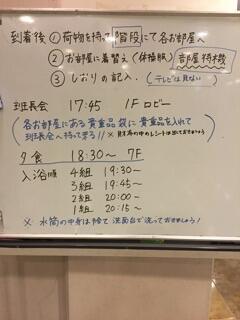 到着後 ① 荷物を持って 階段 にて各お部屋へ
② お部屋に着替え (体操服) 部屋 待機
③ しおりの記入. (テレビは見ない)
班長会 17:45 1Fロビー
(各お部屋にある貴重品袋に貴重品を入れて
班長会へ持って来る!! ※財布の中のレシートは出しておきましょう)
夕食 18:30〜 7F
入浴順 4組 19:30〜
3組 19:45〜
2組 20:00〜
1組 20:15〜
※ 水筒の中身は捨て 洗面台で洗っておきましょう!